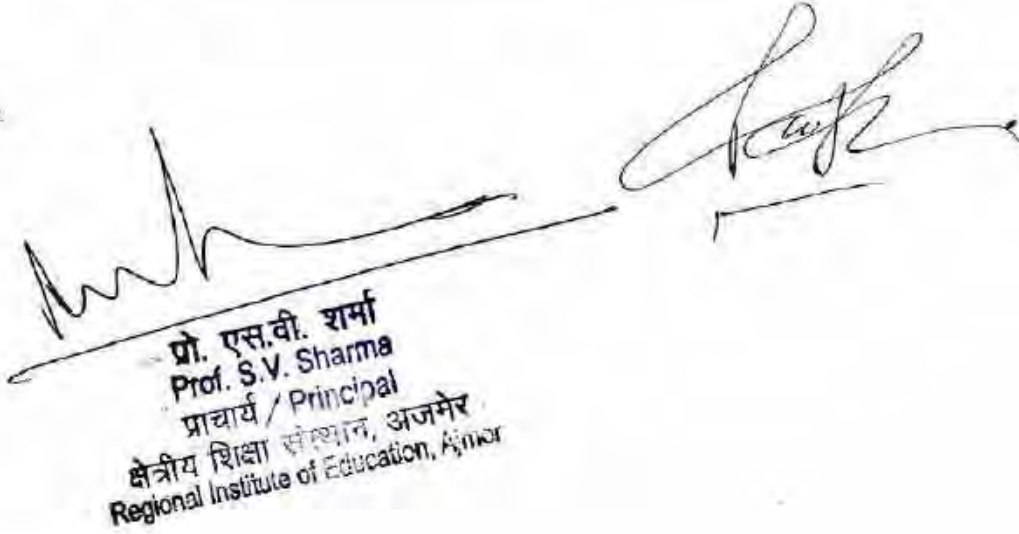 प्रो. एस.वी. शर्मा
Prof. S.V. Sharma
प्राचार्य / Principal
क्षेत्रीय शिक्षा संस्थान, अजमेर
Regional Institute of Education, Ajmer